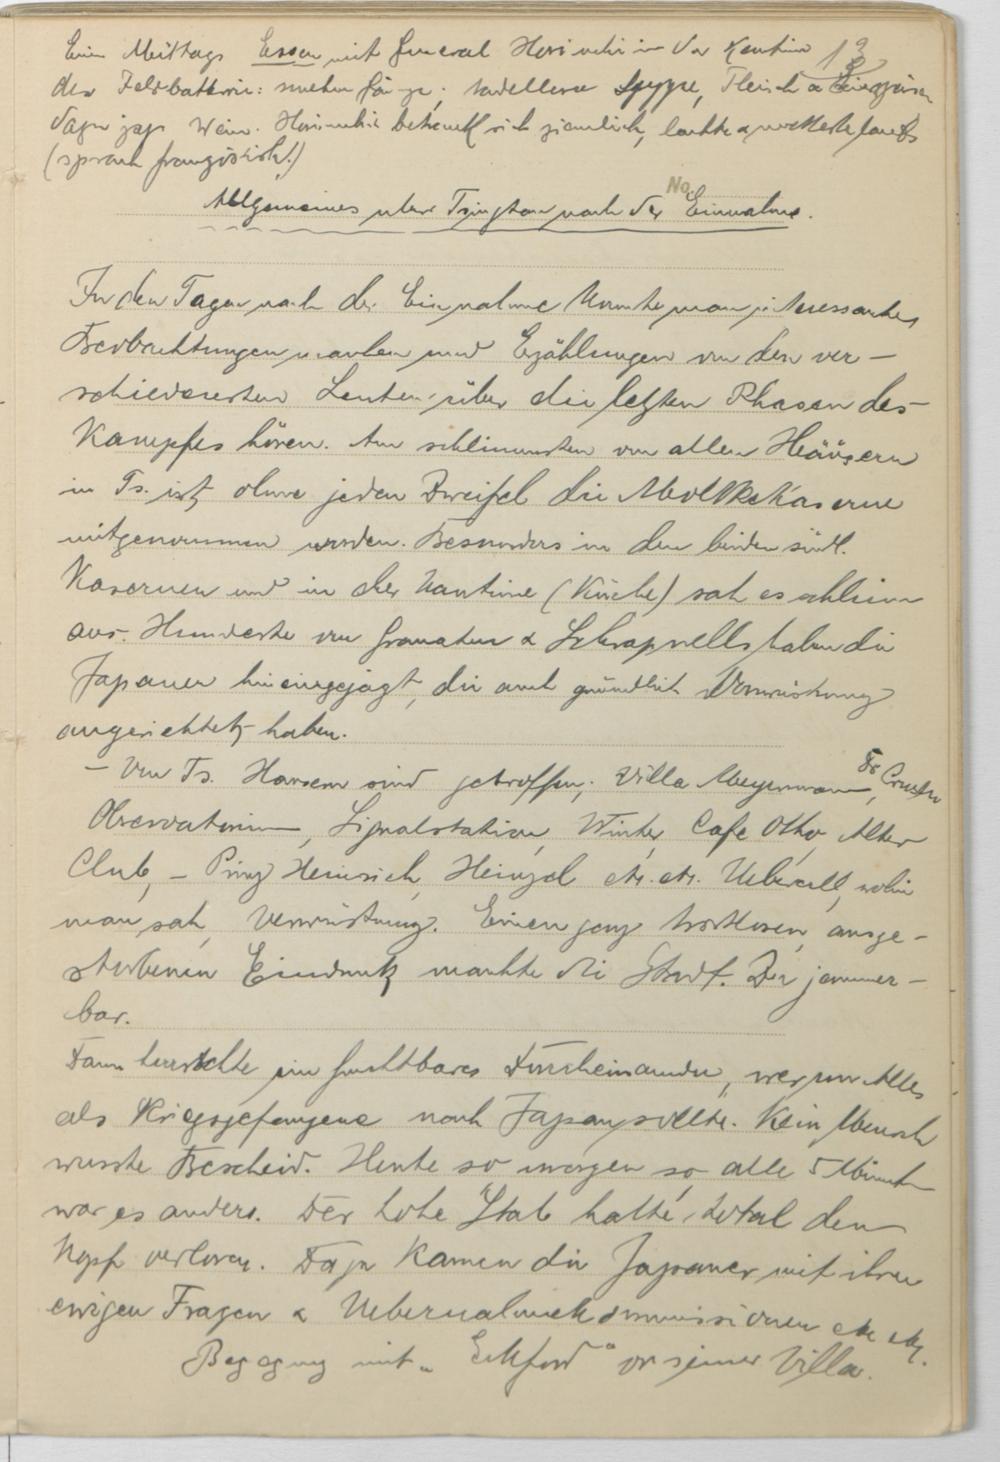 Ein Mittags Essen mit General Horiuchi in der Kantine
der Feldbatterie: mehrere Gänge: tadellose Suppe, Fleisch &
dazu jap. Wein. Horiuchi betrank sich ziemlich, lachte &
(sprach französisch!)
13
No.
Allgemeines über Tsingtau nach der Einnahme.
In den Tagen nach der Einnahme konnte man interessante
Beobachtungen machen und Erzählungen von den ver-
schiedensten Leuten über die letzten Phasen des
Kampfes hören. Am schlimmsten von allen Häüsern
in Ts. ist, ohne jeden Zweifel die Moltkekaserne
mitgenommen worden. Besonders in den beiden südl.
Kasernen und in der Kantine (Küche) sah es schlimm
aus. Hunderte von Granaten & Schrapnells haben die
Japaner hineingejagt, die auch gründlich Verwüstung
angerichtet haben.
- Von Ts. Häusern sind getroffen: Villa Meyermann, Dr.
Observatorium, Signalstation, Winter, Cafe Otto, Alter
Club, - Prinz Heinrich, Heinzel etc. etc. Ueberall, wohin
man sah, Verwüstung. Einen ganz trostlosen, ausge-
storbenen Eindruck machte die Stadt. Der jammer-
bar.
Dann herrschte ein furchtbares Durcheinander, wer nun Alles
als Kriegsgefangene nach Japan sollte. Kein Mensch
wusste Bescheid. Heute so morgen so, alle 5 Minuten
war es anders. Der hohe "Stab" hatte total den
Kopf verloren. Dazu kamen die Japaner mit ihren
ewigen Fragen & Uebernahmekommissionen etc etc.
Begegnung mit "Eckford" vor seiner Villa.